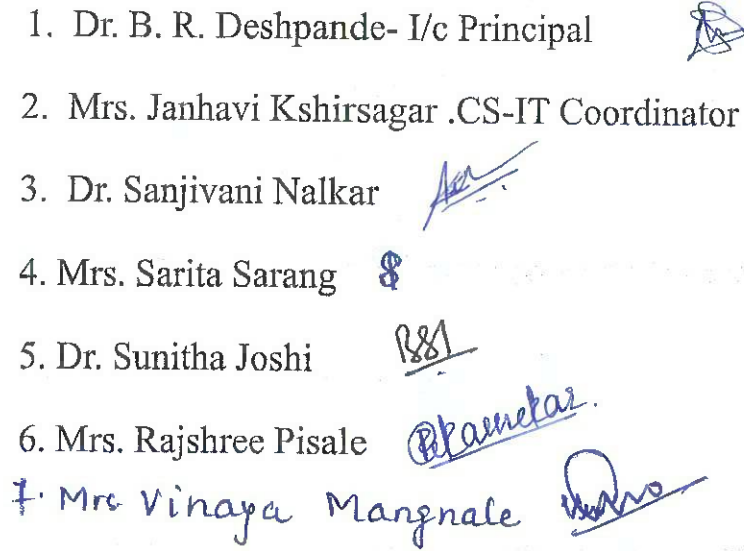 1. Dr. B. R. Deshpande- I/c Principal
2. Mrs. Janhavi Kshirsagar .CS-IT Coordinator
3. Dr. Sanjivani Nalkar
4. Mrs. Sarita Sarang
5. Dr. Sunitha Joshi
6. Mrs. Rajshree Pisale
7. Mrs Vinaya Mangnale